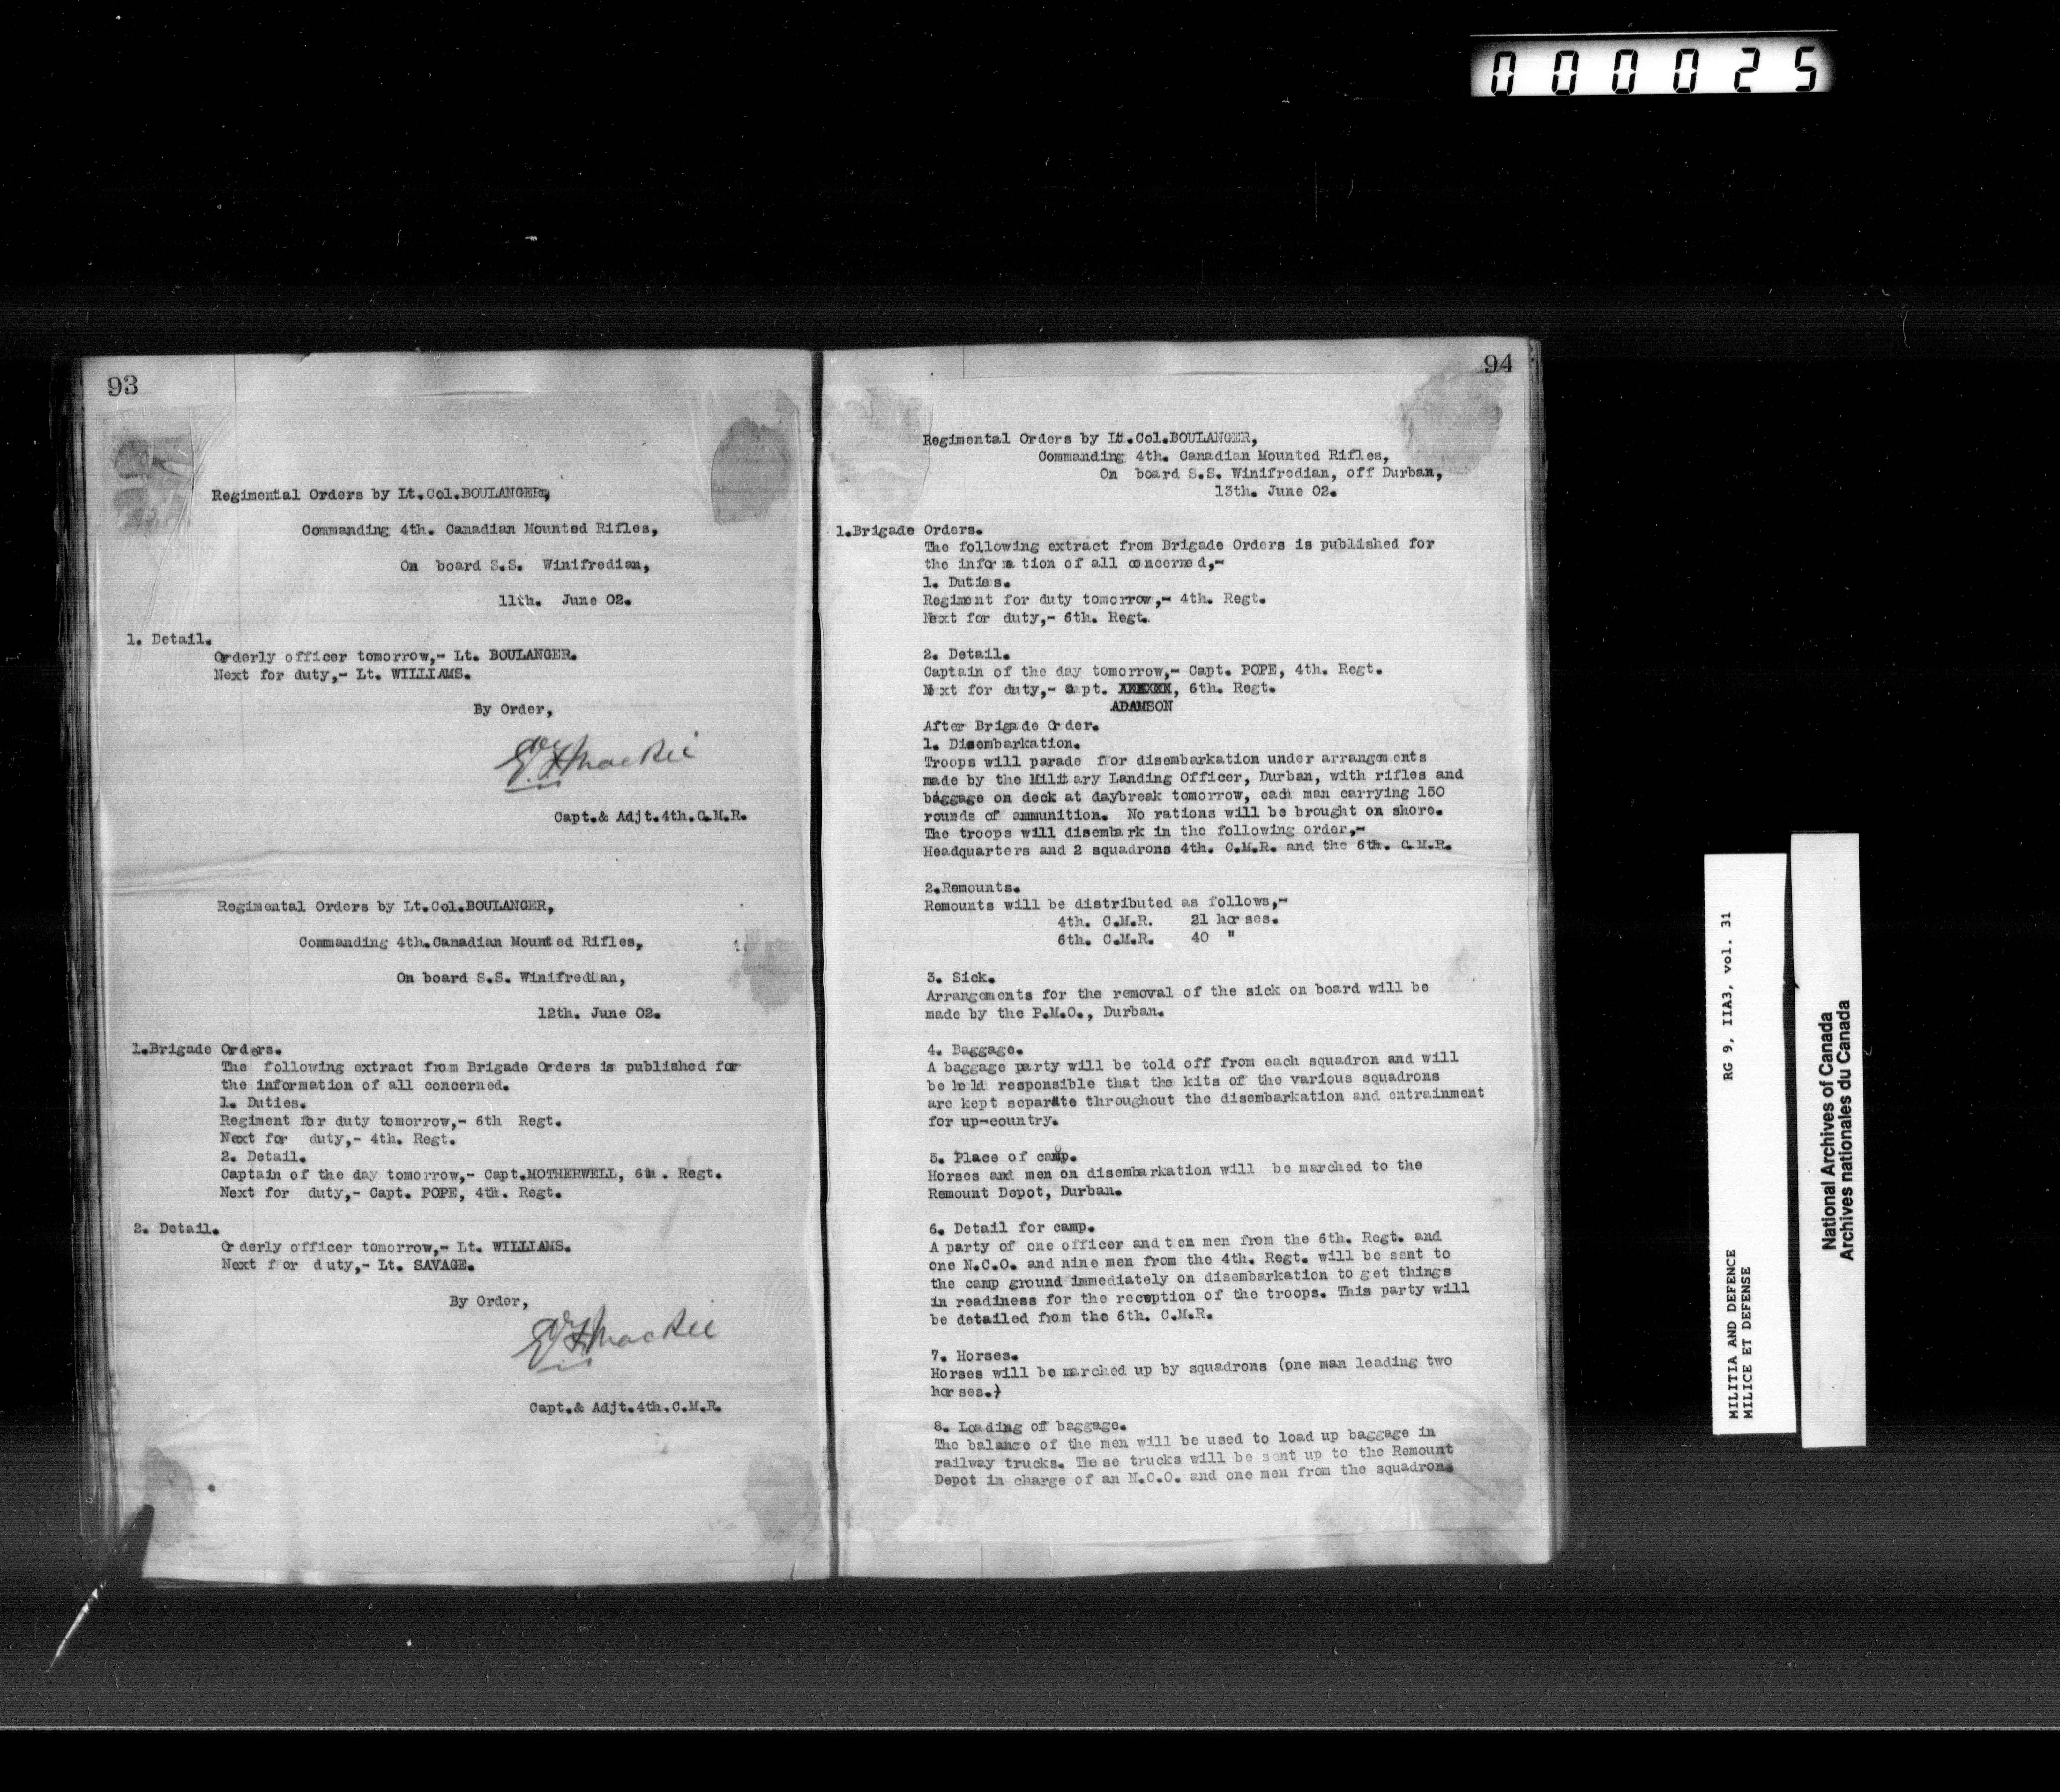 000025
93
Regimental Orders by Lt.Col.BOULANGER,
Commanding 4th. Canadian Mounted Rifles,
On board S.S. Winifredian,
11th. June 02.
1. Detail.
Orderly officer tomorrow,- Lt. BOULANGER.
Next for duty,- Lt. WILLIAMS.
By Order,
Capt.& Adjt.4th.C.M.R.
Regimental Orders by Lt.Col.BOULANGER,
Commanding 4th.Canadian Mounted Rifles,
On board S.S. Winifredian,
12th. June 02.
1.Brigade Orders.
The following extract from Brigade Orders is published for
the information of all concerned.
1. Duties.
Regiment for duty tomorrow,- 6th Regt.
Next for duty,- 4th. Regt.
2. Detail.
Captain of the day tomorrow,- Capt.MOTHERWELL, 6th. Regt.
Next for duty,- Capt. POPE, 4th. Regt.
2. Detail.
Orderly officer tomorrow,- Lt. WILLIAMS.
Next for duty,- Lt. SAVAGE.
By Order,
Capt.& Adjt.4th.C.M.R.
94
Regimental Orders by Lt.Col.BOULANGER,
Commanding 4th. Canadian Mounted Rifles,
On board S.S. Winifredian, off Durban,
13th. June 02.
1.Brigade Orders.
The following extract from Brigade Orders is published for
the information of all concerned,-
1. Duties.
Regiment for duty tomorrow,- 4th. Regt.
Next for duty,- 6th. Regt.
2. Detail.
Captain of the day tomorrow,- Capt. POPE, 4th. Regt.
Next for duty,- Capt. XXXXXX, 6th. Regt.
ADAMSON
After Brigade Order.
1. Disembarkation.
Troops will parade for disembarkation under arrangements
made by the Military Landing Officer, Durban, with rifles and
baggage on deck at daybreak tomorrow, each man carrying 150
rounds of ammunition. No rations will be brought on shore.
The troops will disembark in the following order,-
Headquarters and 2 squadrons 4th. C.M.R. and the 6th. C.M.R.
2.Remounts.
Remounts will be distributed as follows,-
4th. C.M.R. 21 horses.
6th. C.M.R. 40 "
3. Sick.
Arrangements for the removal of the sick on board will be
made by the P.M.O., Durban.
4. Baggage.
A baggage party will be told off from each squadron and will
be held responsible that the kits of the various squadrons
are kept separate throughout the disembarkation and entrainment
for up-country.
5. Place of camp.
Horses and men on disembarkation will be marched to the
Remount Depot, Durban.
6. Detail for camp.
A party of one officer and ten men from the 6th. Regt. and
one N.C.O. and nine men from the 4th. Regt. will be sent to
the camp ground immediately on disembarkation to get things
in readiness for the reception of the troops. This party will
be detailed from the 6th. C.M.R.
7. Horses.
Horses will be marched up by squadrons (one man leading two
horses.)
8. Loading of baggage.
The balance of the men will be used to load up baggage in
railway trucks. These trucks will be sent up to the Remount
Depot in charge of an N.C.O. and one men from the squadron.
MILITIA AND DEFENCE RG 9, IIA3, vol. 31
MILICE ET DEFENSE
National Archives of Canada
Archives nationales du Canada